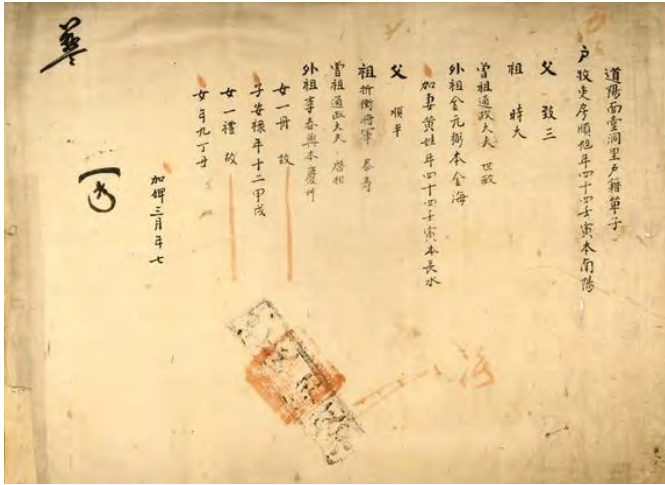 道陽面壹洞里戶籍單子
戶 吏房順旭年四十四壬寅本南陽
父 致三
祖 時大
曾祖通政大夫 世敏
外祖金元弼本金海
加妻黃姓年四十四壬寅本長水
父 順平
祖 折衝將軍 泰壽
曾祖通政大夫
外祖李春興本慶州
女一 故
子安祿年十二甲戌
女一禮 故
女年九丁丑
加婢三月年七